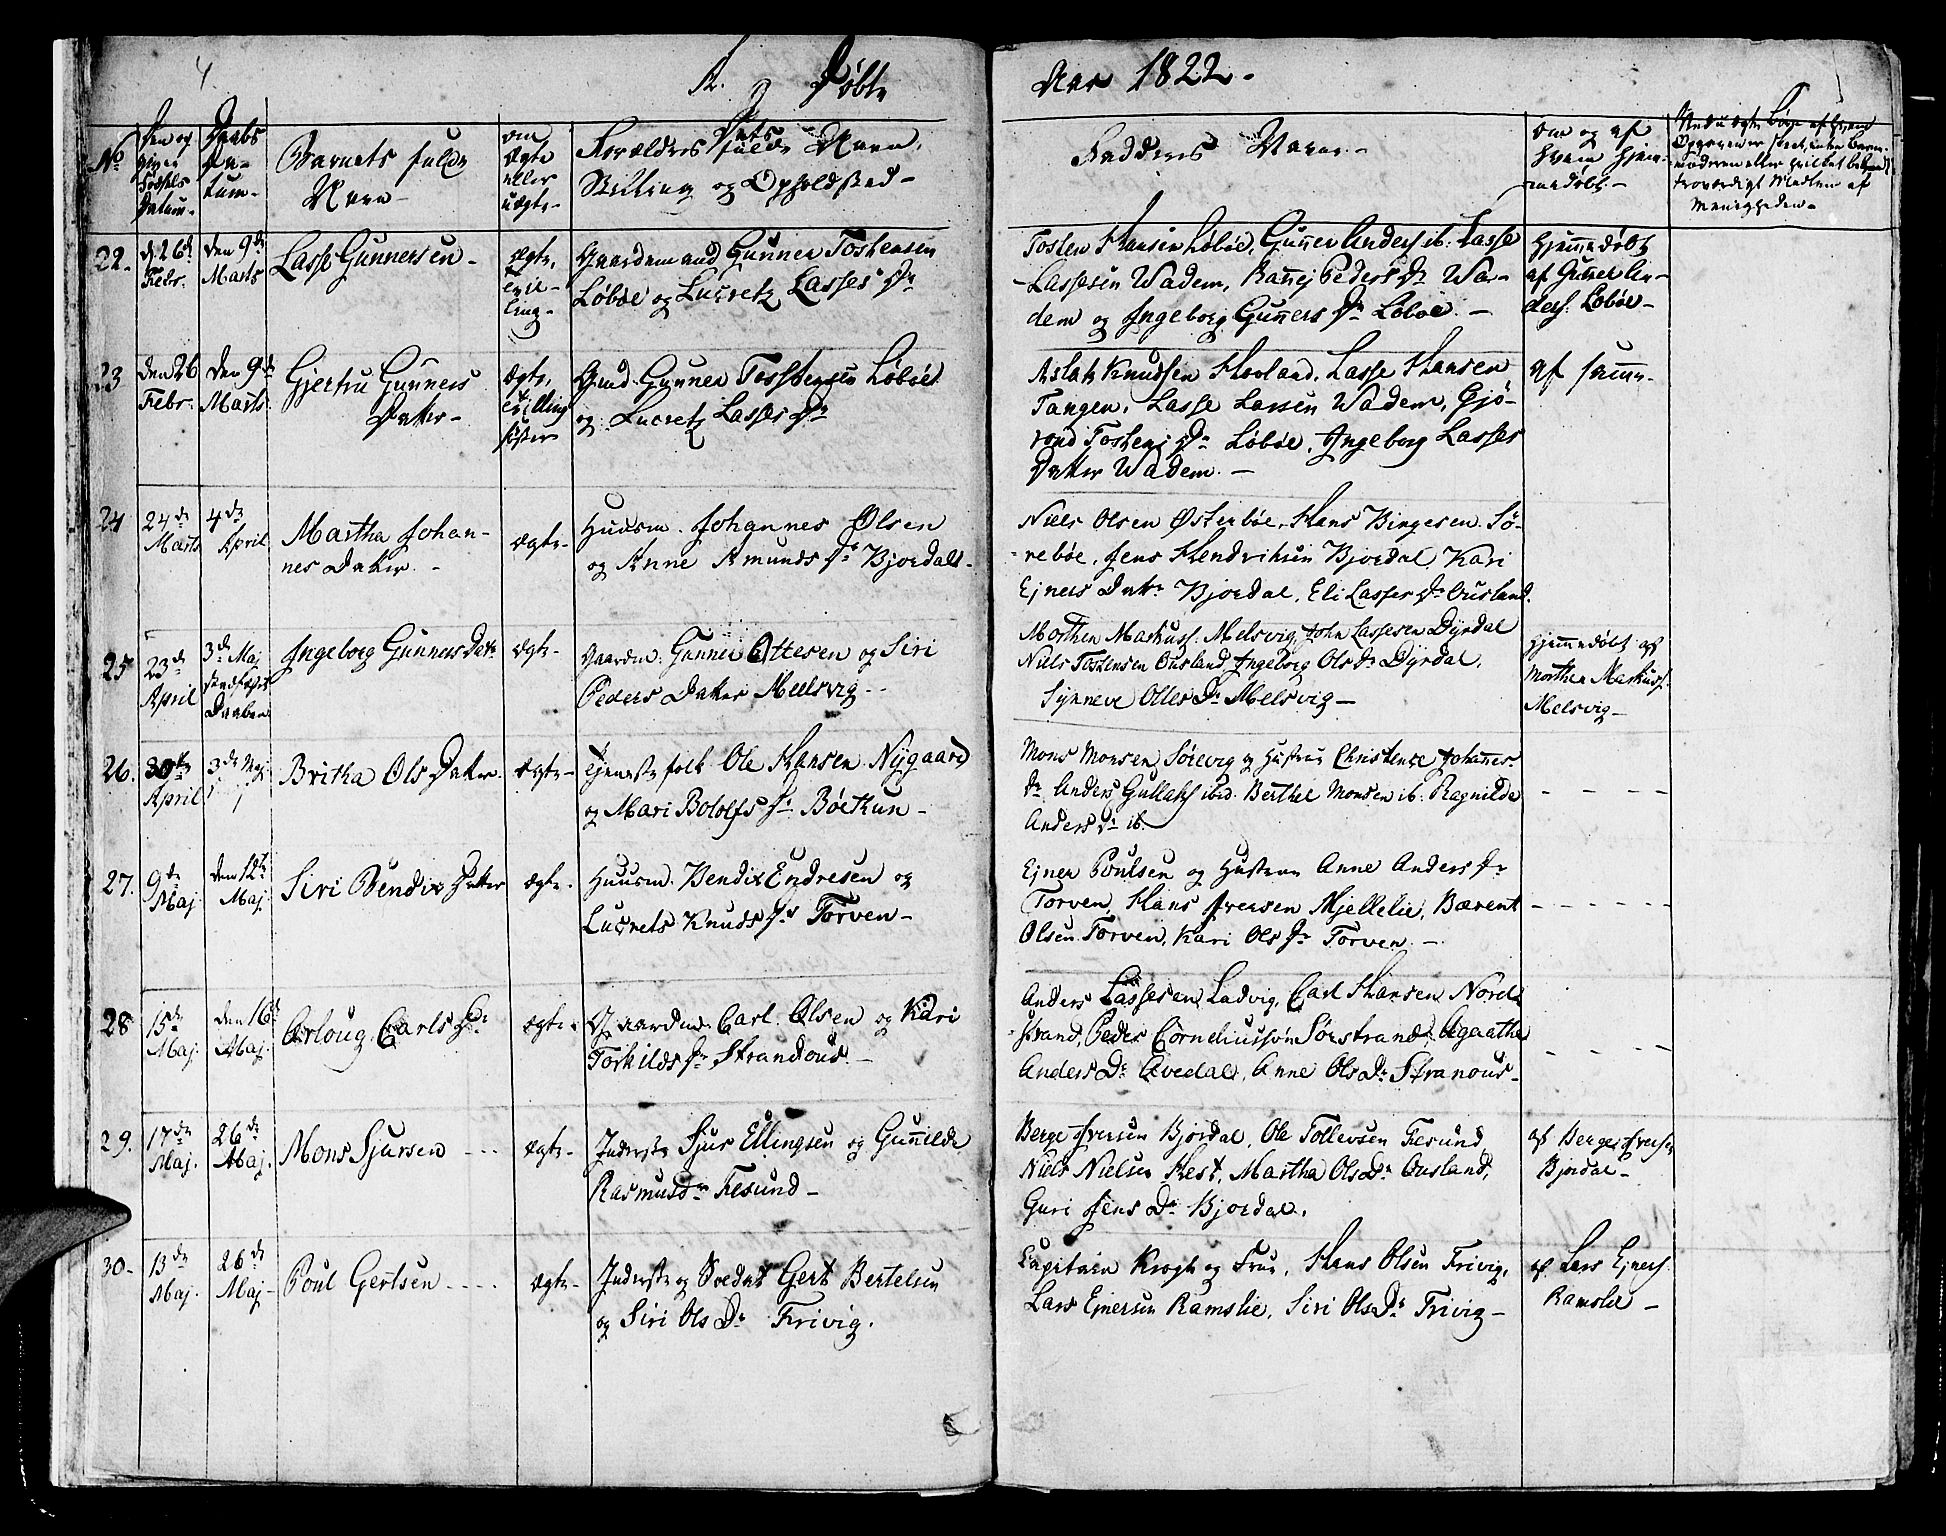 4
A.
Døbte
Aar 1822.
No
Den og
Fødsels
Datum.
Daabs
Da-
tum.
Barnets fulde
Navn
om
Ægte
eller
uægte.
Forældres fulde Navn,
Stilling og Opholdsted
Faddernes Navne.
Om og af
hvem hjem-
medøbt.
troværdigt Medlem af
Menigheden.
22.
d. 26de
Febr.
Den 9de
Marts
Lasse Gunnersen
ægte,
tvil-
ling
Gaardmand Gunner Tostensen
Løbøe og Lucretz Lasses Dr
Tosten Hansen Løbøe, Gunner Anders. ib. Lasse
Lassesen Wadem, Peders Dr Wa-
dem og Ingeborg Gunners Dr Løbøe.
Hjemmedøbt
af Gunner An-
ders. Løbøe
23
Den 26
Febr.
Den 9de
Marts
Gjertru Gunners
Datter
ægte,
tvilling
søster
Gmd. Gunner Tostensen Løbøe
og Lucretz Lasses Dr
Aslak Knudsen Hovland, Lasse Hansen
Tangen, Lasse Lassen Wadem, Gjø-
rond Tostens Dr Løbøe, Ingeborg Lasses
Datter Wadem.
af samme
24
24de
Marts
4de
April
Martha Johan-
nes Datter
ægte
Huusm. Johannes Olsen
og Anne Amunds Dr Bjordal
Niels Olsen Østerbøe, Hans Bingesen Sø-
rebøe, Jens Hendriksen Bjordal, Kari
Ejners Datr Bjordal, Eli Lasses Dr Ousland.
25
23de
April
3de Maj
stadfæstet
Daaben
Ingeborg Gunners Datr
ægte
Gaardm. Gunner Ottesen og Siri
Peders Datter Melsvig
Morthen Markuss. Melsvig, John Lassesen Dyrdal
Niels Tostensen Ousland, Ingeborg Ols Dr Dyrdal,
Synneve Olles Dr Melsvig
Hjemmedøbt af
Morthen Markuss.
Melsvig
26.
30te
April
3de Maj
Britha Ols Datter
ægte
Tjenestefolk Ole Hansen Nygaard
og Mari Bolofs Dr Bøetun
Mons Monsen Sørevig og Hustrue Christense Johannes
Dr Anders Gullaks. ibid. Berthel Monsen ib. Ragnilde
Anders Dr ib.
27.
9de
Maj
Den 12te
Maj
Siri Bendix Datter
ægte
Huusm. Bendix Endresen og
Lucrets Knuds Dr Torven
Ejner Poulsen og Hustrue Anne Anders Dr
Torven, Hans Iversen Mjellelie, Bærent
Olsen Torven, Kari Ols Dr Torven.
28
15de
Maj
den 16de
Maj
Orloug Carls Dr
ægte
Gaardm. Carl Olsen og Kari
Torkilds Dr Strandous.
Anders Lassesen Ladvig, Carl Hansen Nord-
strand, Peder Corneliussøn Sørstrand, Agaathe
Anders Dr Avedal, Anne Ols Dr Stranous
29.
17de
Maj.
26de
Maj.
Mons Sjursen
ægte
Inderste Sjur Ellingsen og Gunnilde
Rasmusdr Tesund
Berge Iversen Bjordal, Ole Tollevsen Tesund
Niels Nielsen Hest, Martha Olsdr Ousland,
Guri Jens Dr Bjordal.
af Berge Iversen
Bjordal
30
13de
Maj.
26de
Maj
Poul Gertsen
ægte
Inderste og Soldat Gert Bertelsen
og Siri Ols Dr Trivig.
Capitain Krogh og Frue, Hans Olsen Trivig,
Lars Ejnersen Ramslie, Siri Ols Dr Trivig
af Lars Ejners.
Ramslie